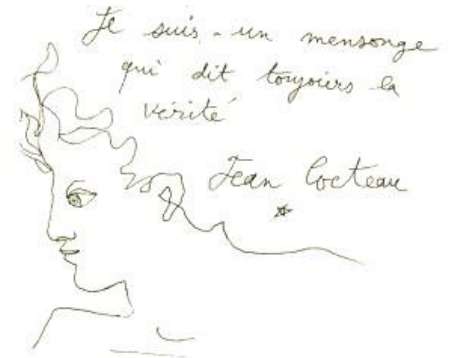 Je suis - un mensonge
qui dit toujours la
vérité
Jean Cocteau